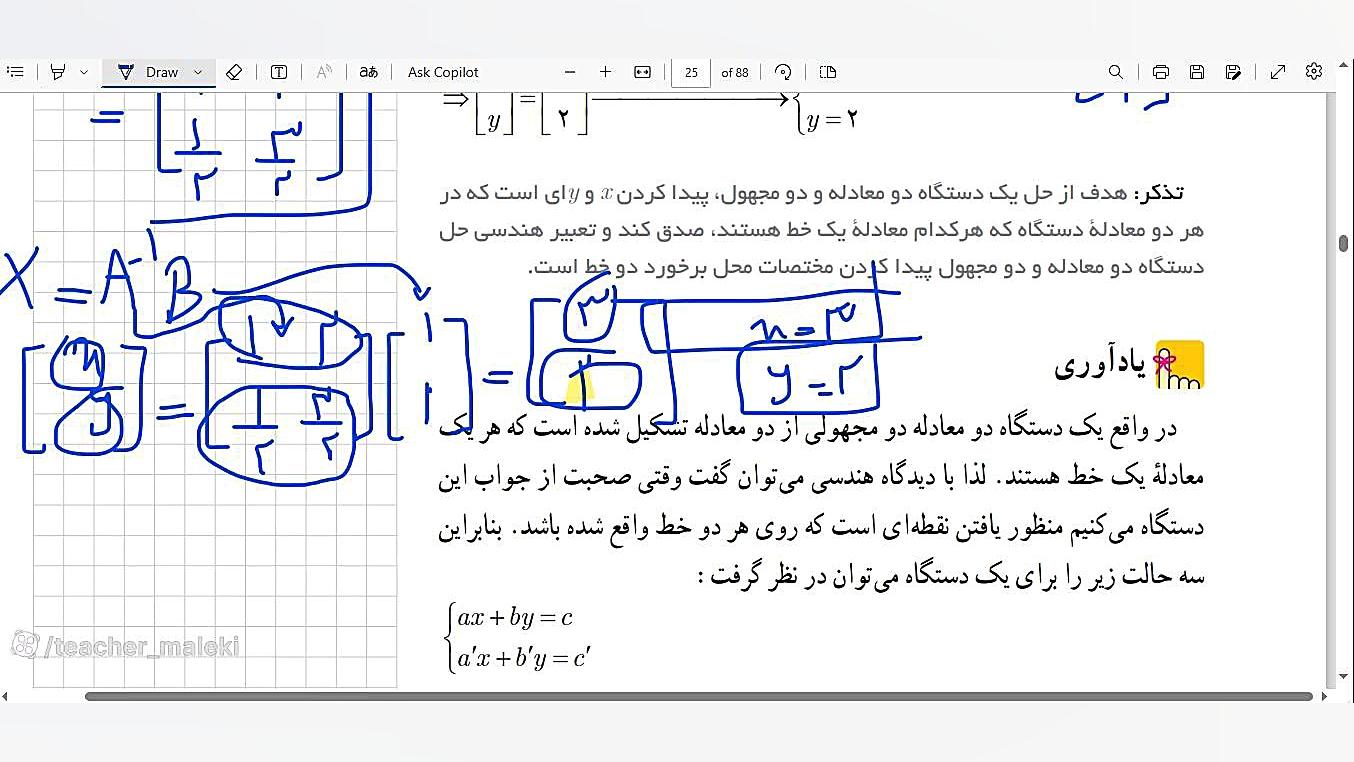 Draw
Ask Copilot
25 of 88
⇒ [y] = [۲] → {y = ۲
تذکر: هدف از حل یک دستگاه دو معادله و دو مجهول، پیدا کردن x و y ای است که در
هر دو معادلهٔ دستگاه که هرکدام معادلهٔ یک خط هستند، صدق کند و تعبیر هندسی حل
دستگاه دو معادله و دو مجهول پیدا کردن مختصات محل برخورد دو خط است.
X = A⁻¹ B
[x y] = [۱ ۲ ۱/۲ ۳/۲] [۱ ۱] = [۳ ۲]
x = ۳
y = ۲
یادآوری
در واقع یک دستگاه دو معادله دو مجهولی از دو معادله تشکیل شده است که هر یک
معادلهٔ یک خط هستند. لذا با دیدگاه هندسی می‌توان گفت وقتی صحبت از جواب این
دستگاه می‌کنیم منظور یافتن نقطه‌ای است که روی هر دو خط واقع شده باشد. بنابراین
سه حالت زیر را برای یک دستگاه می‌توان در نظر گرفت :
ax + by = c
a′x + b′y = c′
/teacher_maleki